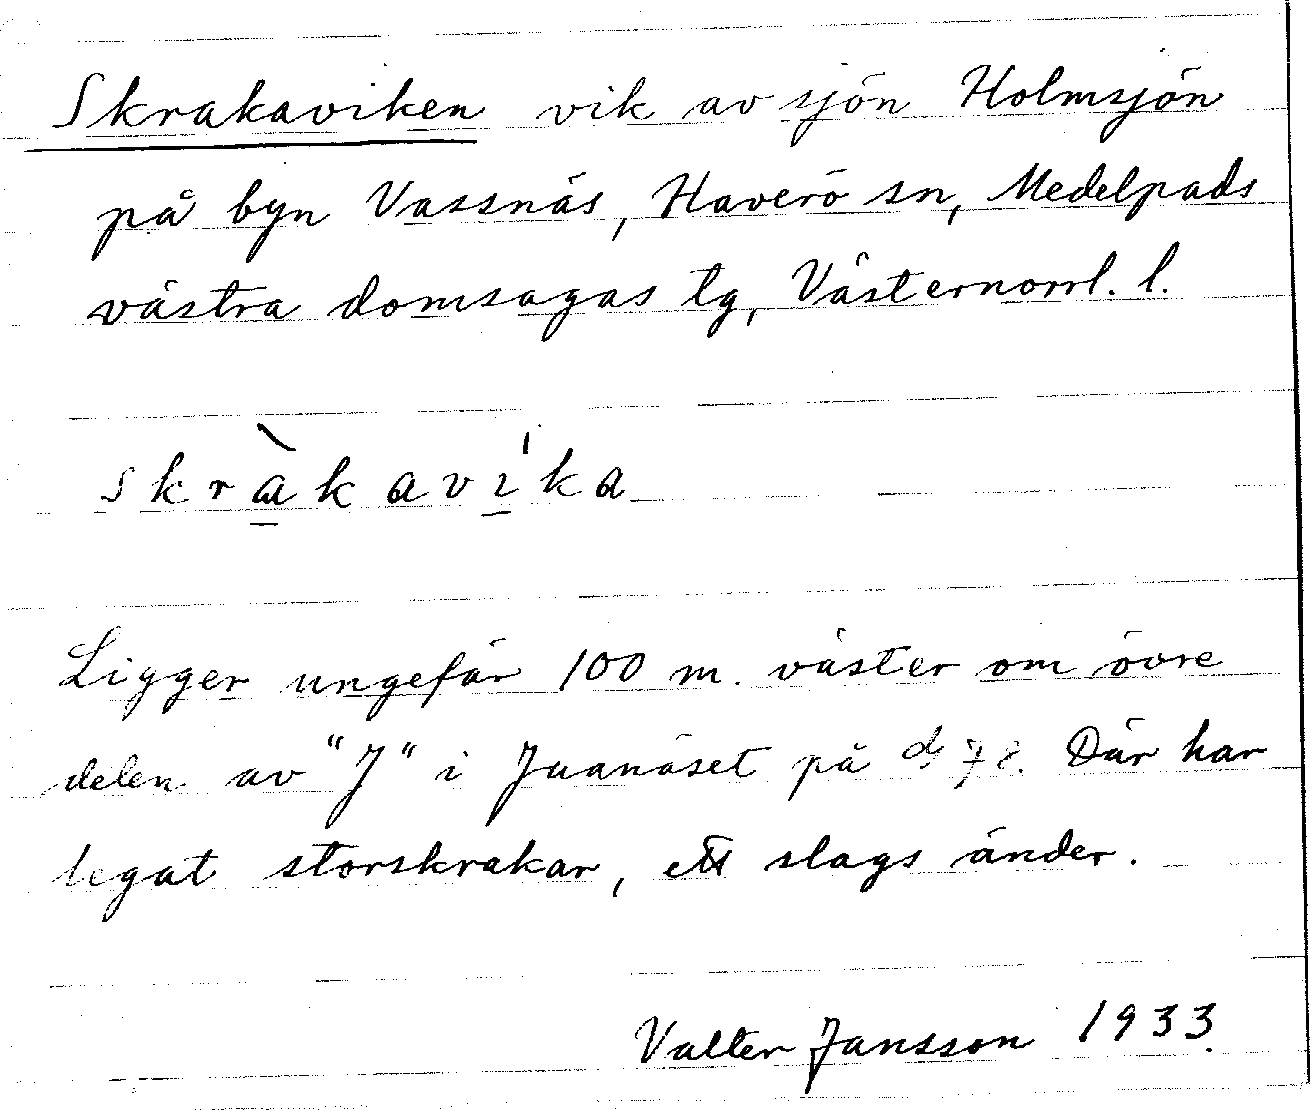 Skrakaviken vik av sjön Holmsjön
på byn Vassnäs, Haverö sn, Medelpads
västra domsagas tg, Västernorrl. l.
skràkavi'ka
Ligger ungefär 100 m. väster om övre
delen av "J" i Juanäset på 78. Där har
legat storskrakar, ett slags änder.
Valter Jansson 1933.